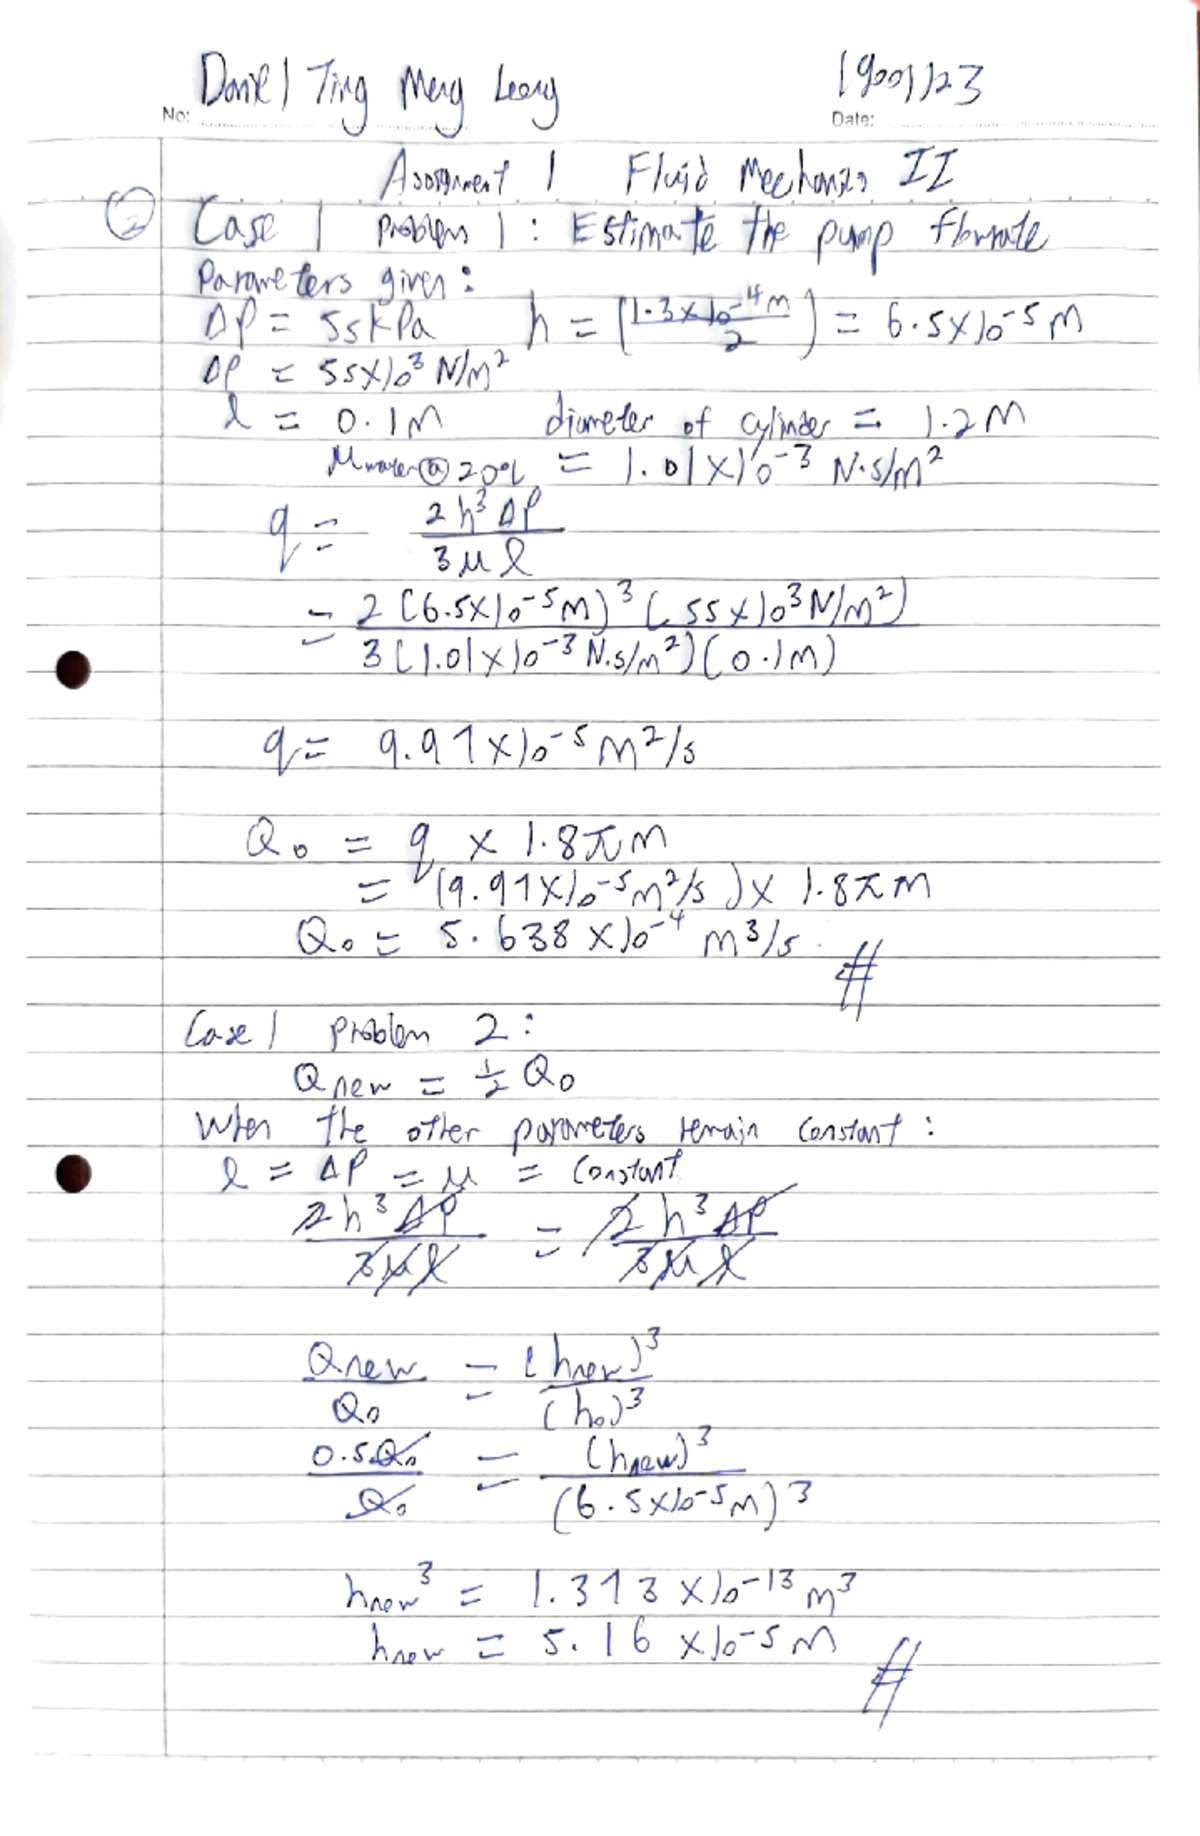 Daniel Ting Meng Leong
No:
Date:
Assignment 1 Fluid Mechanics II
2 Case 1 Problem 1: Estimate the pump flowrate
Parameters given:
ΔP = 55kPa h = (1.3×10⁻⁴m / 2) = 6.5×10⁻⁵m
ΔP = 55×10³ N/m²
l = 0.1m diameter of cylinder = 1.2m
μwater@20°C = 1.01×10⁻³ N·s/m²
q = 2h³ΔP / 3μl
= 2(6.5×10⁻⁵m)³(55×10³N/m²) / 3(1.01×10⁻³N.s/m²)(0.1m)
q = 9.97×10⁻⁵m²/s
Q₀ = q × 1.8πm
= (9.97×10⁻⁵m²/s) × 1.8πm
Q₀ = 5.638×10⁻⁴ m³/s. #
Case 1 problem 2:
Qnew = ½ Q₀
When the other parameters remain constant:
l = ΔP = μ = constant
2h³ΔP / 3μl = 2h³ΔP / 3μl
Qnew / Q₀ = (hnew)³ / (h₀)³
0.5Q₀ / Q₀ = (hnew)³ / (6.5×10⁻⁵m)³
hnew³ = 1.373×10⁻¹³m³
hnew = 5.16×10⁻⁵m #